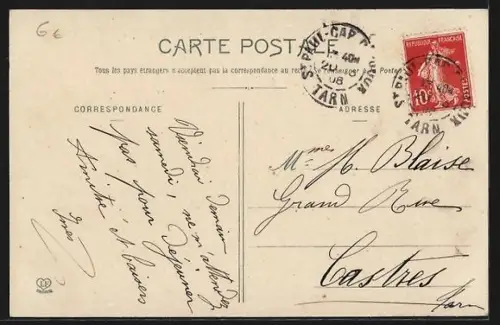 6 €
CARTE POSTALE
Tous les pays étrangers n'acceptent pas la correspondance au recto
CORRESPONDANCE
ADRESSE
ST PAUL-CAP
20
08
TARN
REPUBLIQUE FRANÇAISE
10
POSTES
Viendrai demain
samedi, ne m'attendez
pas pour déjeuner
Amitié et baisers
Mme H. Blaise
Grand Rue
Castres
Tarn